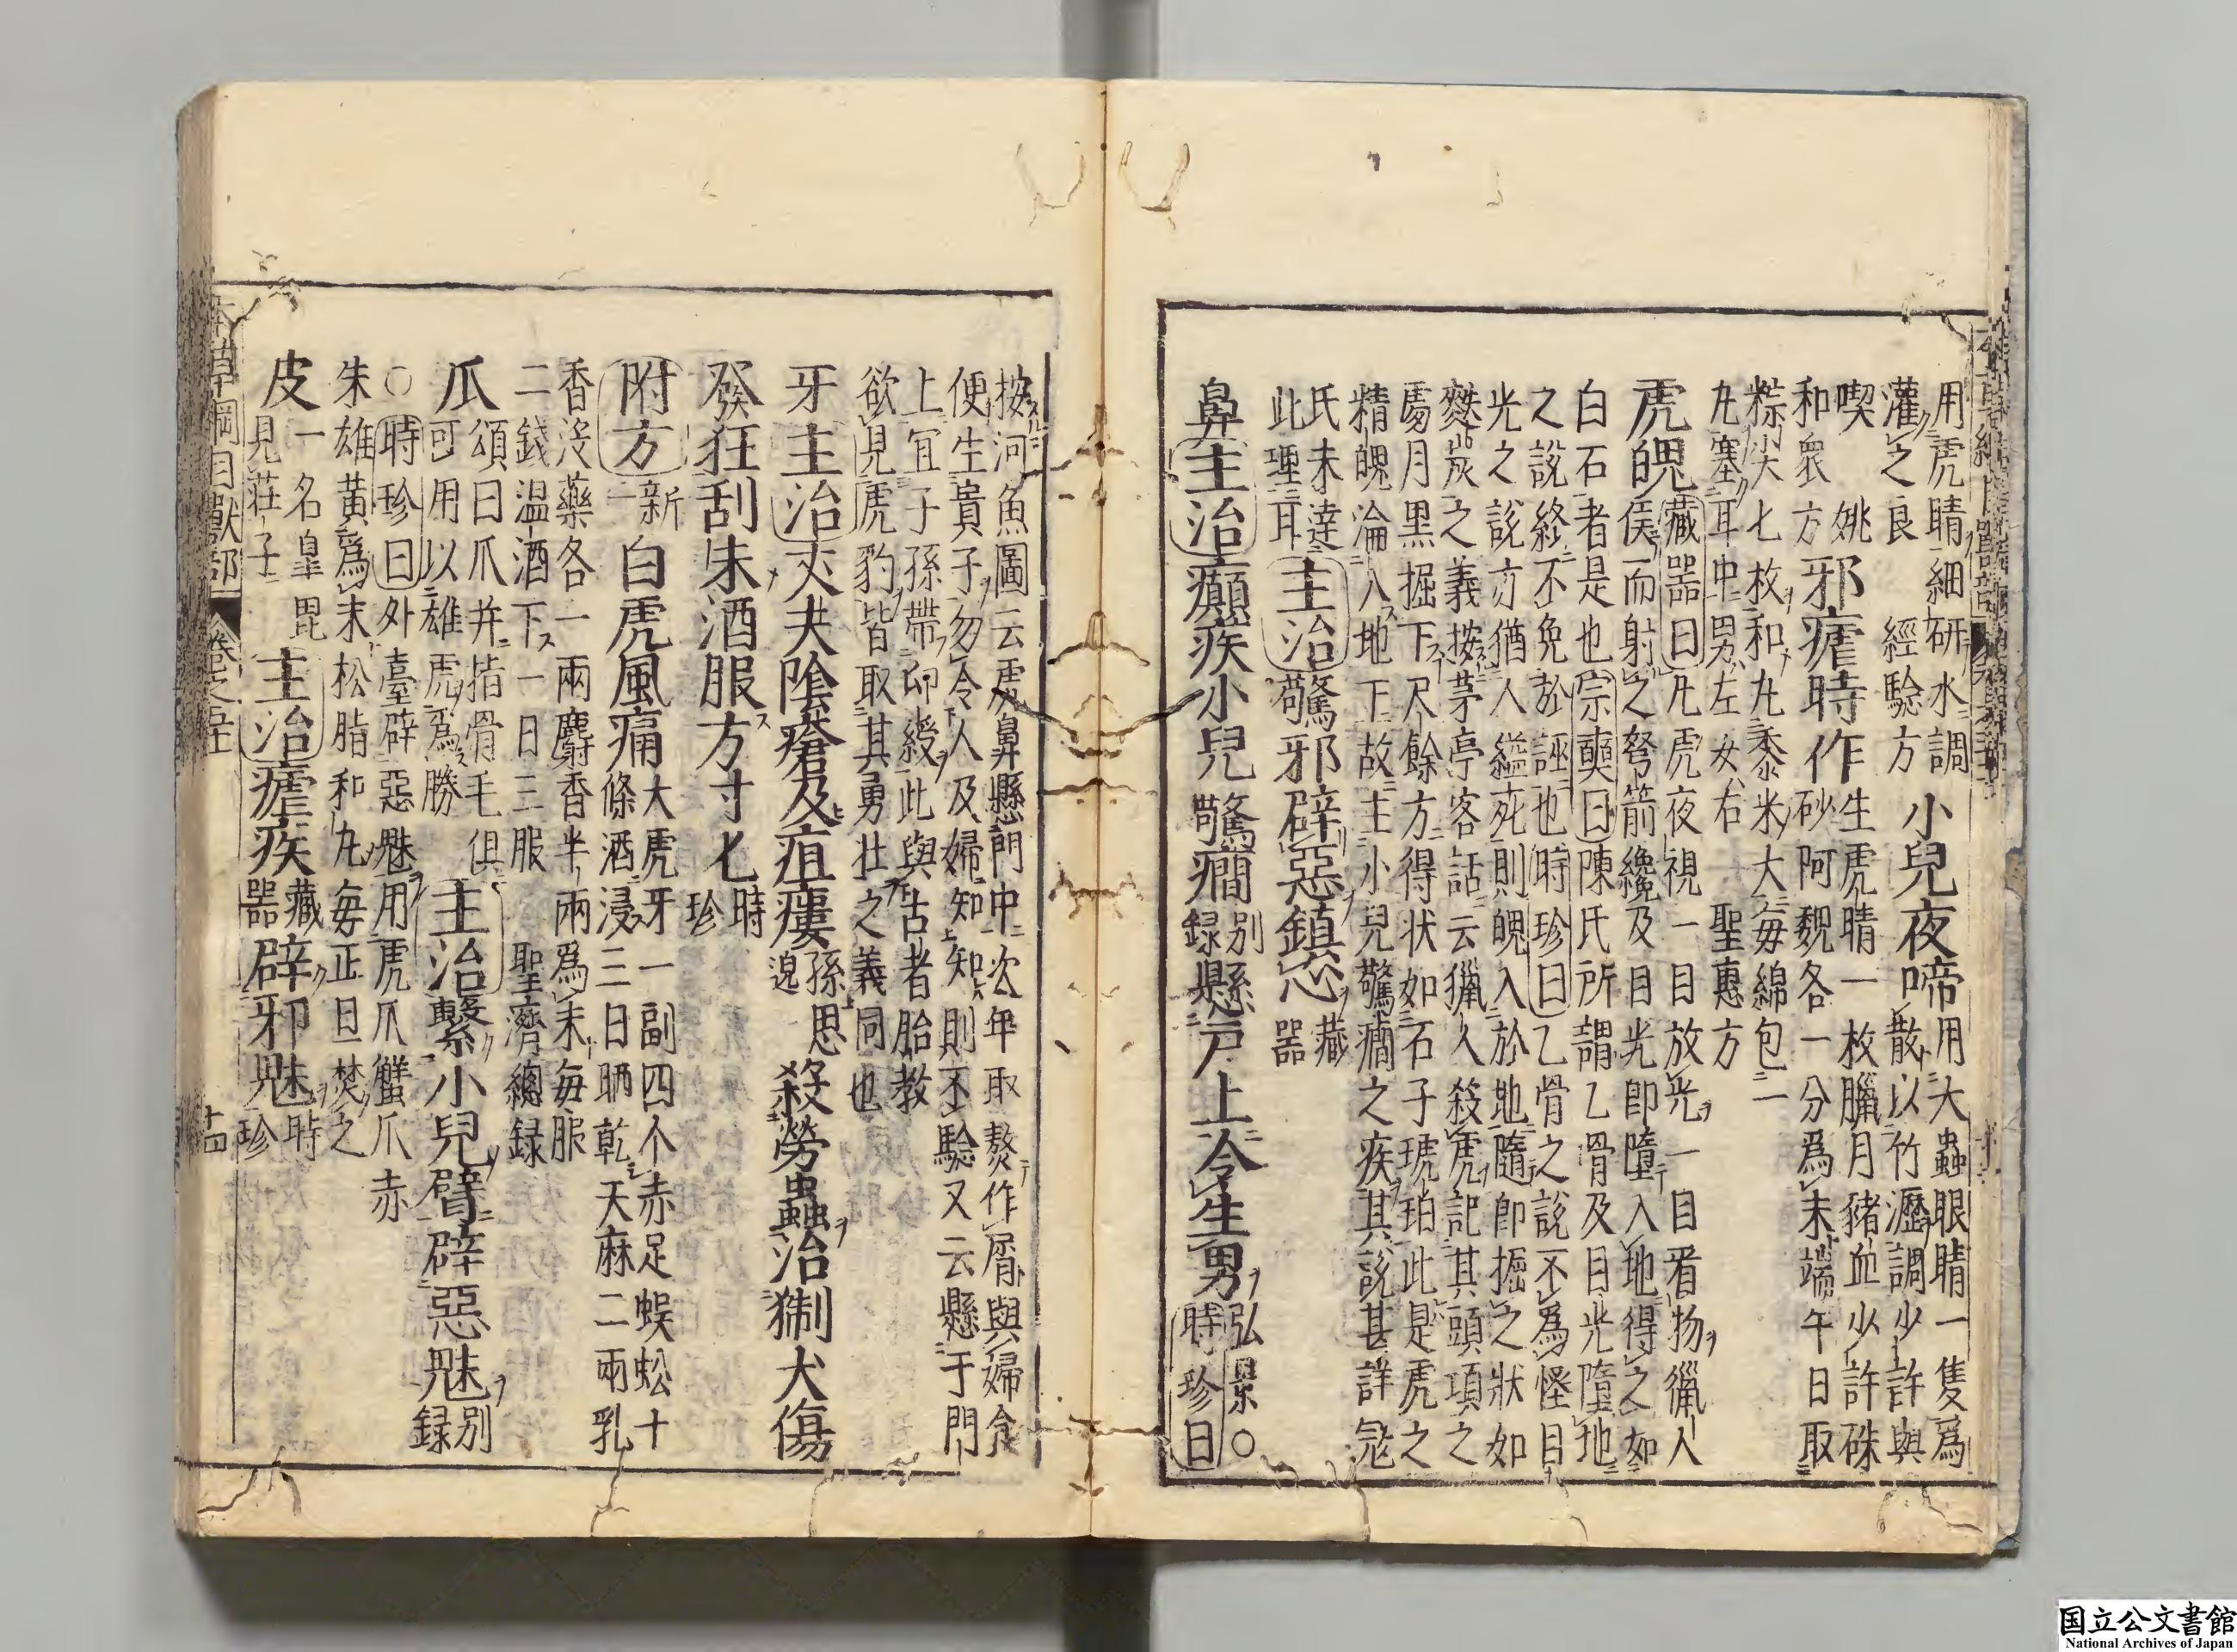 用虎睛細研水調
灌之良 經驗方 小兒夜啼 用大蟲眼睛一隻爲
散以竹瀝調少許與
喫 姚
和衆方 邪瘧時作 生虎睛一枚臘月豬血少許硃
砂阿魏各一分爲末端午日取
粽尖七枚和丸黍米大每綿包一
丸塞耳中男左女右 聖惠方
虎魄 藏器曰凡虎夜視一目放光一目看物獵人
侯而射之弩箭纔及目光即墮入地得之如
白石者是也宗奭曰陳氏所謂乙骨及目光墮地
之說終不免於誣也時珍曰乙骨之說不爲怪目
光之說亦猶人縊死則魄入於地隨即掘之狀如
麩炭之義按茅亭客話云獵人殺虎記其頭項之
處月黑掘下尺餘方得狀如石子琥珀此是虎之
精魄淪入地下故主小兒驚癇之疾其說甚詳寇
氏未達
此理耳 主治驚邪辟惡鎮心 藏
器
鼻主治癲疾小兒驚癇 别
録 懸戸上令生男 弘景○
時珍曰
按河魚圖云虎鼻懸門中一次年取熬作屑與婦食
便生貴子勿令人及婦知知則不驗又云懸于門
上宜子孫帶印綬此與古者胎教
欲見虎豹皆取其勇壯之義同也
牙主治丈夫陰瘡及疽瘻 孫思
邈 殺勞蟲治猘犬傷
發狂刮末酒服方寸匕 時
珍
附方 新一 白虎風痛 大虎牙一副四个赤足蜈蚣十
條酒浸三日晒乾天麻二兩乳
香没藥各一兩麝香半兩爲末每服
二錢温酒下一日三服 聖濟總録
爪 頌曰爪并指骨毛俱
可用以雄虎爲勝 主治繫小兒臂辟惡魅 别
録
○時珍曰外臺辟惡魅用虎爪蟹爪赤
朱雄黄爲末松脂和丸毎正旦焚之
皮 一名皐毘
見荘子 主治瘧疾 藏
器 辟邪魅 時
珍
本草綱目獸部 卷之五十一 十四
国立公文書館
National Archives of Japan